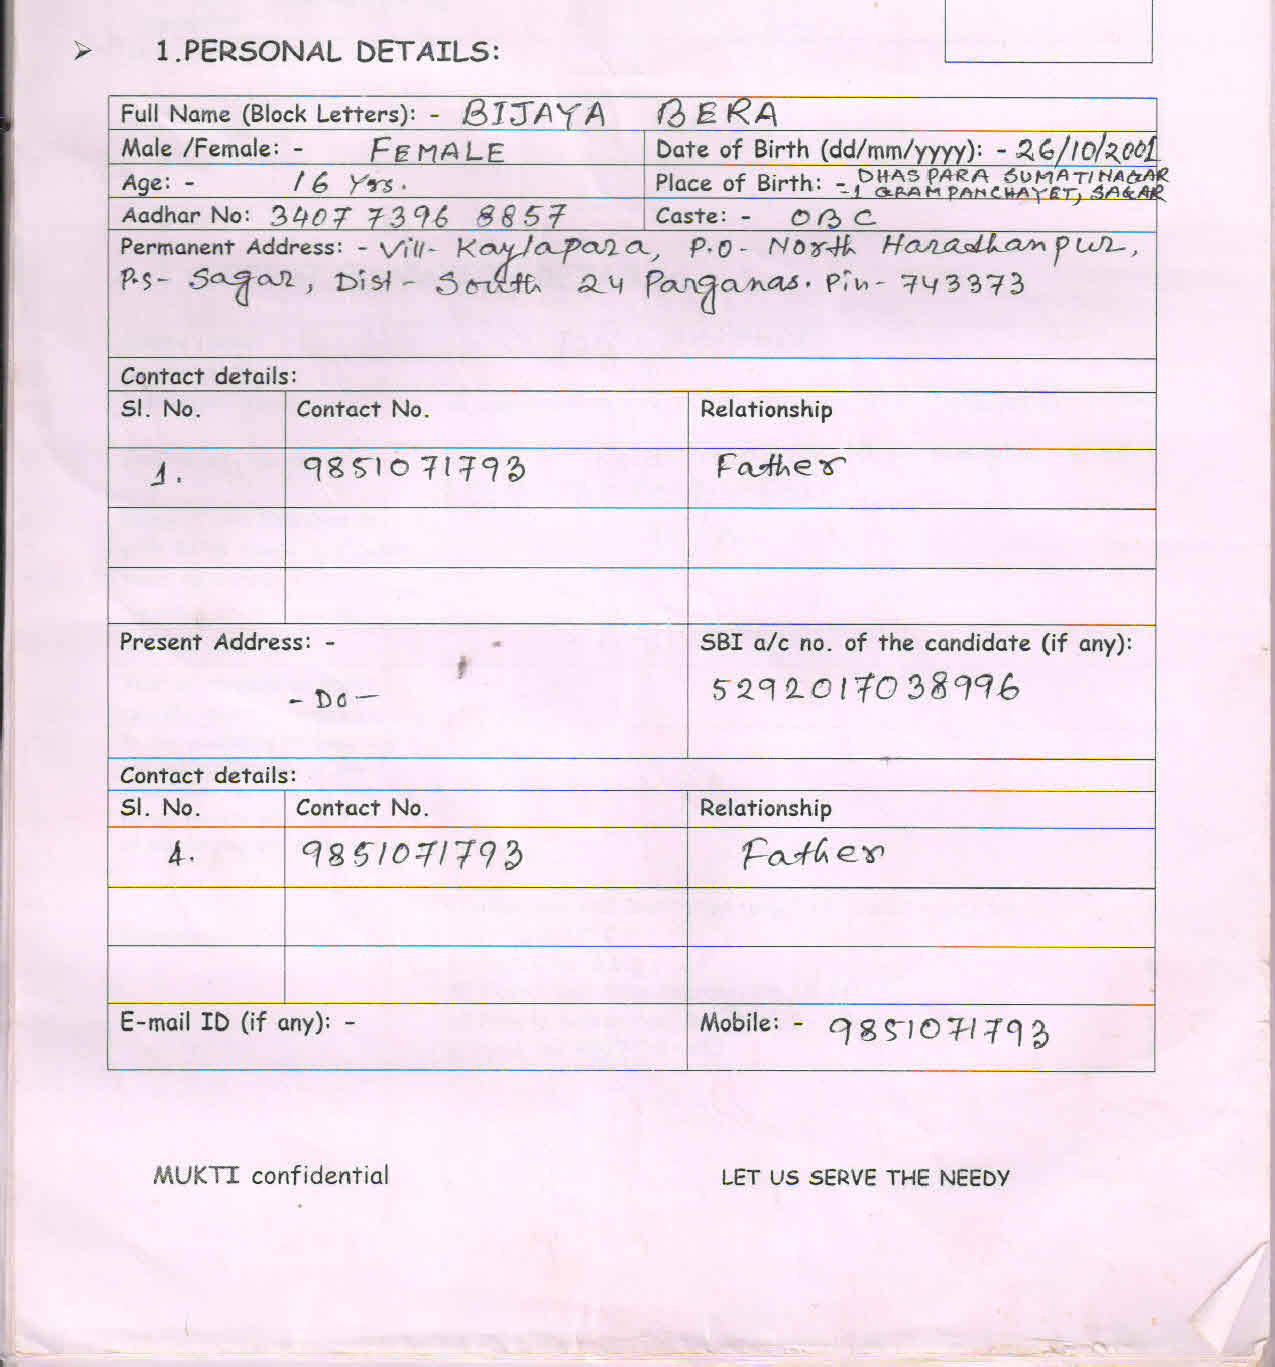 ➢ 1.PERSONAL DETAILS:
Full Name (Block Letters): - BIJAYA BERA
Male /Female: - FEMALE
Date of Birth (dd/mm/yyyy): - 26/10/2001
Age: - 16 Yrs.
Place of Birth: - DHASPARA SUMATINAGAR
-1 GRAM PANCHAYET, SAGAR
Aadhar No: 3407 7396 8857
Caste: - OBC
Permanent Address: - Vill- Kaylapara, P.O- North Haradhanpur,
P.S- Sagar, Dist- South 24 Parganas. Pin- 743373
Contact details:
Sl. No. Contact No. Relationship
1. 9851071793 Father
Present Address: -
- Do -
SBI a/c no. of the candidate (if any):
5292017038996
Contact details:
Sl. No. Contact No. Relationship
1. 9851071793 Father
E-mail ID (if any): -
Mobile: - 9851071793
MUKTI confidential
LET US SERVE THE NEEDY